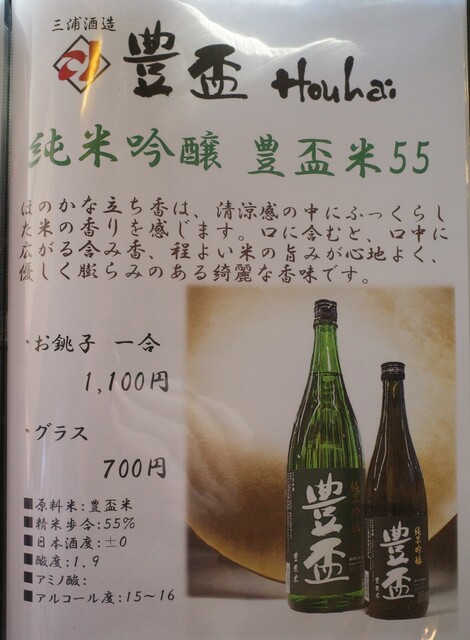 三浦酒造
豊盃 Houhai
純米吟醸 豊盃米55
ほのかな立ち香は、清涼感の中にふっくらし
た米の香りを感じます。口に含むと、口中に
広がる含み香、程よい米の旨みが心地よく、
優しく膨らみのある綺麗な香味です。
・お銚子 一合
1,100円
・グラス
700円
■原料米:豊盃米
■精米歩合:55%
■日本酒度:±0
■酸度:1.9
■アミノ酸:
■アルコール度:15～16
純米吟醸
豊盃
豊盃米
純米吟醸
豊盃
豊盃米